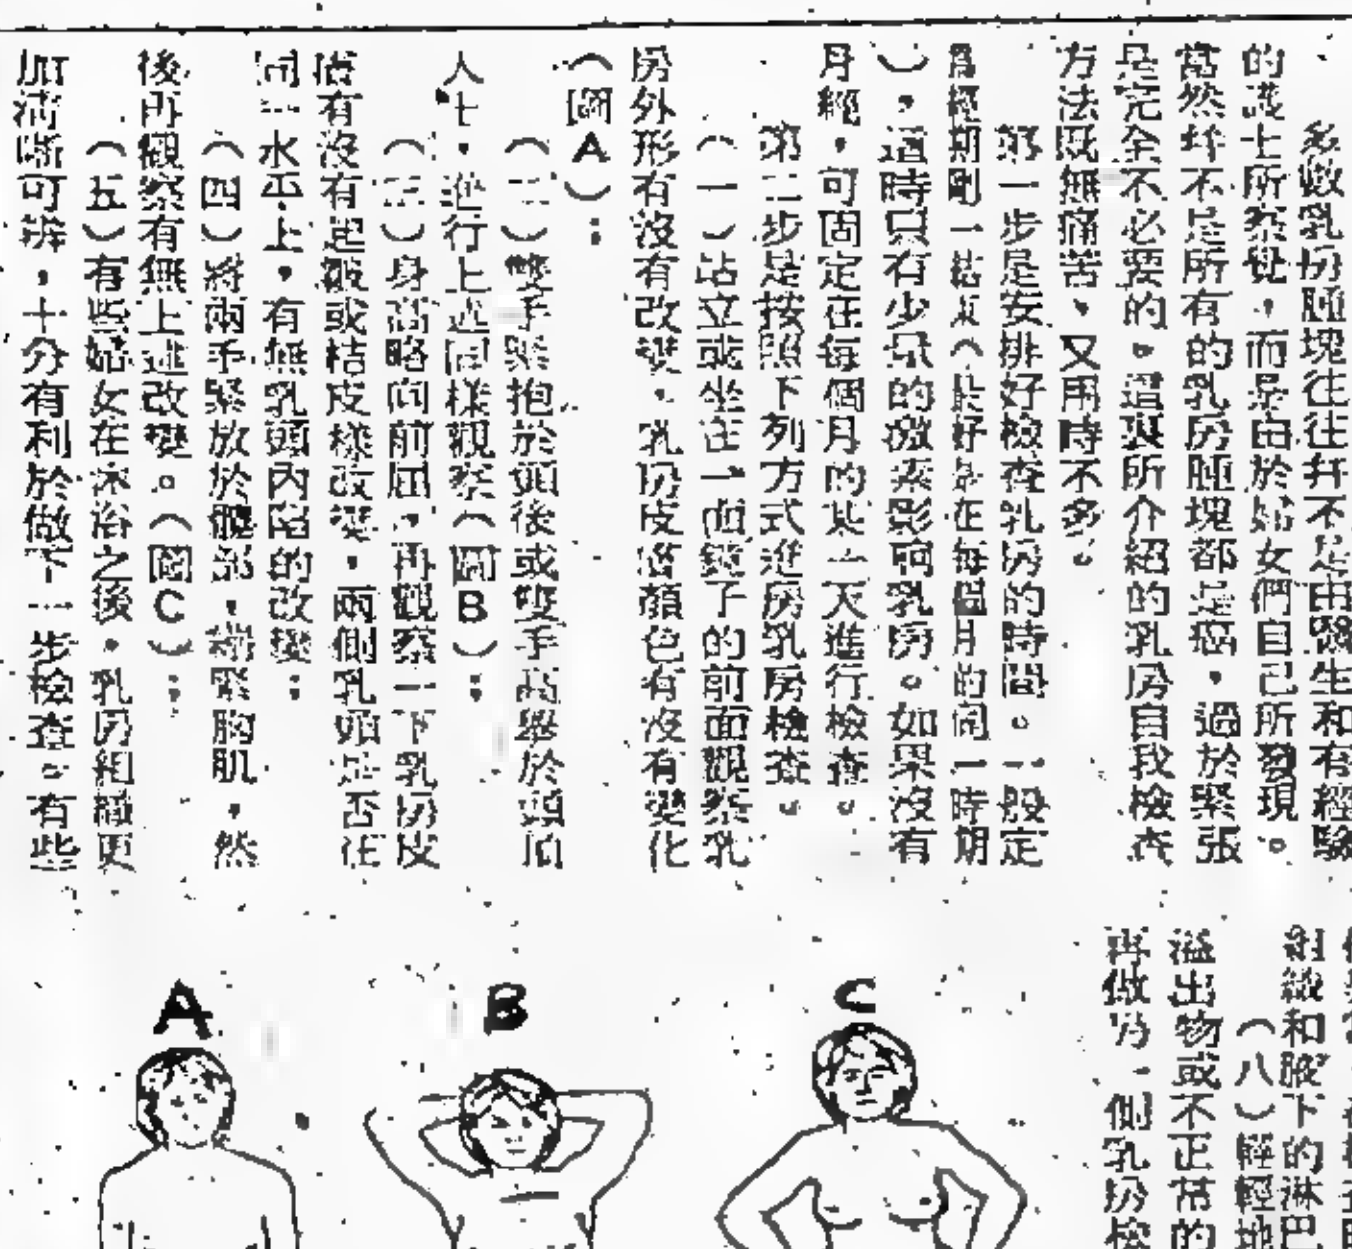 多數乳房腫塊往往幷不是由醫生和有經驗
的護士所察覺，而是由於婦女們自己所發現。
當然幷不是所有的乳房腫塊都是癌，過於緊張
是完全不必要的。這裏所介紹的乳房自我檢查
方法旣無痛苦，又用時不多。
第一步是安排好檢查乳房的時間。一般定
爲經期剛一結束（最好是在每個月的同一時期
），這時只有少量的激素影响乳房。如果沒有
月經，可固定在每個月的某一天進行檢查。
第二步是按照下列方式進房乳房檢查。
（一）站立或坐在一面鏡子的前面觀察乳
房外形有沒有改變，乳房皮膚顏色有沒有變化
（圖A）；
（二）雙手緊抱於頭後或雙手高舉於頭
人士，進行上述同樣觀察（圖B）；
（三）身高略向前屈，再觀察一下乳房皮
膚有沒有起皺或桔皮樣改變，兩側乳頭是否在
同一水平上，有無乳頭內陷的改變；
（四）將兩手緊放於髖部，綳緊胸肌，然
後再觀察有無上述改變。（圖C）；
（五）有些婦女在沐浴之後，乳房組織更
加淸晰可辨，十分有利於做下一步檢查。有些
組織和腋下的淋巴
（八）輕輕地
溢出物或不正常的
再做另一側乳房檢
A
B
C